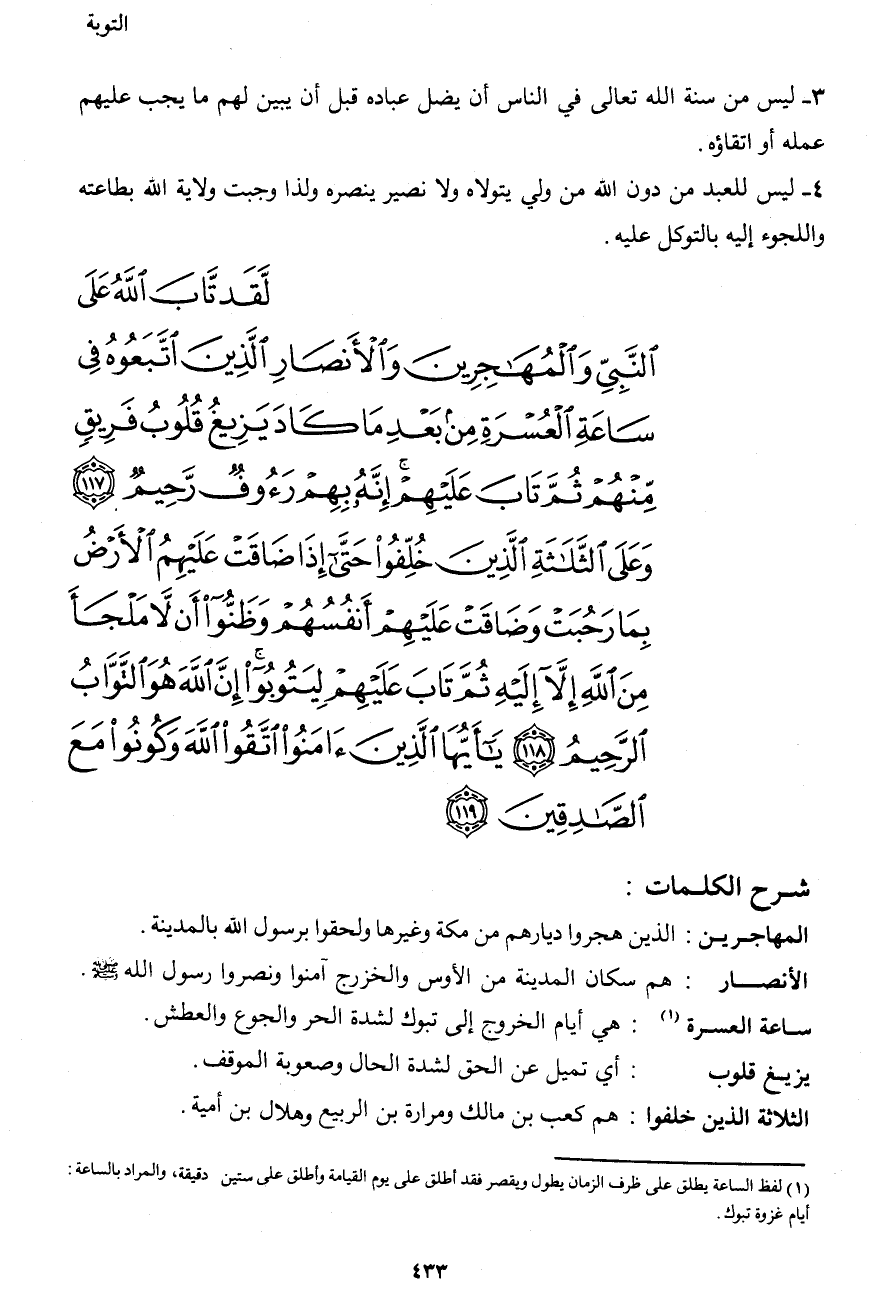 التوبة
٣ـ ليس من سنة الله تعالى في الناس أن يضل عباده قبل أن يبين لهم ما يجب عليهم
عمله أو اتقاؤه .
٤ـ ليس للعبد من دون الله من ولي يتولاه ولا نصير ينصره ولذا وجبت ولاية الله بطاعته
واللجوء إليه بالتوكل عليه .
لَّقَد تَّابَ ٱللَّهُ عَلَى
ٱلنَّبِيِّ وَٱلْمُهَـٰجِرِينَ وَٱلْأَنصَارِ ٱلَّذِينَ ٱتَّبَعُوهُ فِى
سَاعَةِ ٱلْعُسْرَةِ مِنۢ بَعْدِ مَا كَادَ يَزِيغُ قُلُوبُ فَرِيقٍ
مِّنْهُمْ ثُمَّ تَابَ عَلَيْهِمْ ۚ إِنَّهُۥ بِهِمْ رَءُوفٌ رَّحِيمٌ ١١٧
وَعَلَى ٱلثَّلَـٰثَةِ ٱلَّذِينَ خُلِّفُوا۟ حَتَّىٰٓ إِذَا ضَاقَتْ عَلَيْهِمُ ٱلْأَرْضُ
بِمَا رَحُبَتْ وَضَاقَتْ عَلَيْهِمْ أَنفُسُهُمْ وَظَنُّوٓا۟ أَن لَّا مَلْجَأَ
مِنَ ٱللَّهِ إِلَّآ إِلَيْهِ ثُمَّ تَابَ عَلَيْهِمْ لِيَتُوبُوٓا۟ ۚ إِنَّ ٱللَّهَ هُوَ ٱلتَّوَّابُ
ٱلرَّحِيمُ ١١٨ يَـٰٓأَيُّهَا ٱلَّذِينَ ءَامَنُوا۟ ٱتَّقُوا۟ ٱللَّهَ وَكُونُوا۟ مَعَ
ٱلصَّـٰدِقِينَ ١١٩
شرح الكلمات :
المهاجرين : الذين هجروا ديارهم من مكة وغيرها ولحقوا برسول الله بالمدينة .
الأنصـــار : هم سكان المدينة من الأوس والخزرج آمنوا ونصروا رسول الله ﷺ .
ساعة العسرة (١) : هي أيام الخروج إلى تبوك لشدة الحر والجوع والعطش .
يزيغ قلوب : أي تميل عن الحق لشدة الحال وصعوبة الموقف .
الثلاثة الذين خلفوا : هم كعب بن مالك ومرارة بن الربيع وهلال بن أمية .
(١) لفظ الساعة يطلق على ظرف الزمان يطول ويقصر فقد أطلق على يوم القيامة وأطلق على ستين دقيقة، والمراد بالساعة :
أيام غزوة تبوك .
٤٣٣